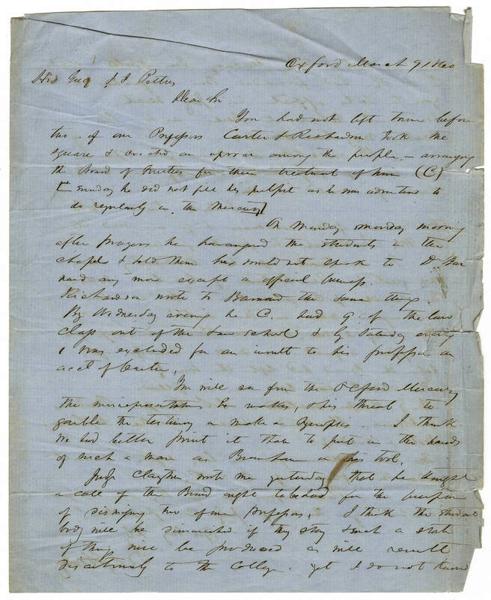 Oxford March 9 1860
His Exy J. J. Pettus
Dear Sir
You had not left town before
two of our Professors Carter & Richardson took the
square & created an uproar among the people — arraigning
the Board of Trustees for their treatment of him (C)
Sunday he did not fill his pulpit as he was advertised to
do regularly in the Mercury
On Monday monday morning
after Prayers he harangued the students in the
chapel & told them he would not speak to Dr Bar
nard any more except on official business.
Richardson wrote to Barnard the same thing.
By Wednesday evening he C. had 9 of the law
class out of the Law School & by Saturday evening
1 was excluded for an insult to his professor on
acct of Carter.
You will see from the Oxford Mercury
the misrepresentation he makes, & his threat to
garble the testimony & make a Synopsis I think
we had better print it than to put in the hands
of such a man as
Judge Clayton wrote me yesterday that he thought
a call of the Board might be had for the purpose
of dismissing two of our Professors. I think the student
body will be diminished if they stay & such a state
of things will be produced as will result
disastrously to the College. yet I do not know